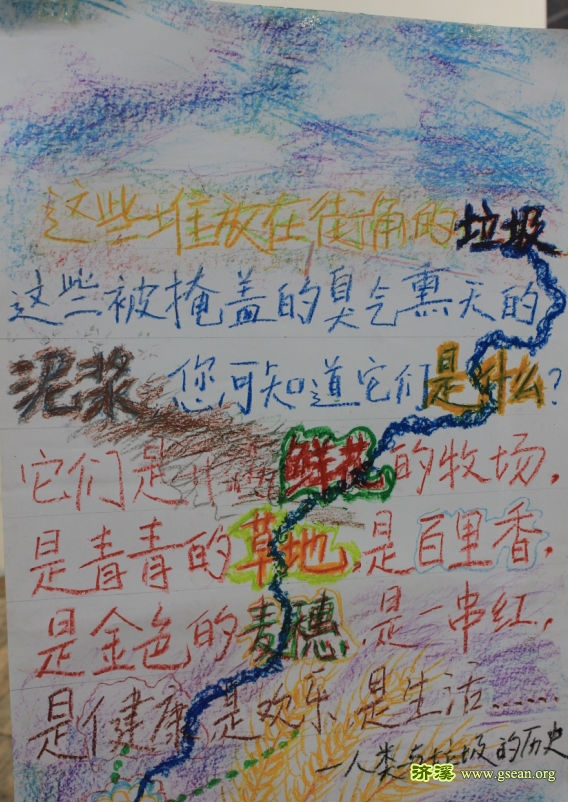 这些堆放在街角的垃圾
这些被掩盖的臭气熏天的
泥浆,您可知道它们是什么?
它们是 鲜花的牧场,
是青青的草地,是百里香,
是金色的麦穗,是一串红,
是健康 是欢乐 是生活……
—人类与垃圾的历史
济溪 www.gsean.org